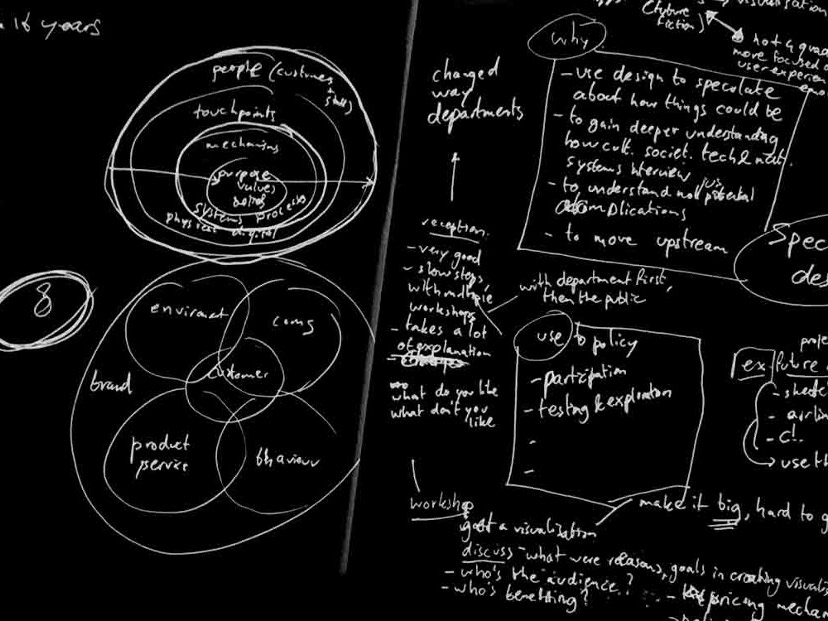 16 years
people (customers + staff)
touchpoints
mechanisms
purpose
values
beliefs
systems processes
physical digital
8
enviroment
coms
customer
brand
product
service
behaviour
changed
way
departments
reception:
- very good
- slow steps,
workshops
- takes a lot
of explanation
what do you like
what don't you
like
with department first,
then the public
workshop
why
- use design to speculate
about how things could be
- to gain deeper understanding
how cult. societ. tech &
systems
- to understand potential
- to move upstream
use to policy
- participation
- testing & exploration
-
-
make it big, hard to
a visualization
discuss what were reasons, goals in creating
- who's the audience?
- who's benefiting?
(future
fiction)
not
move focused
user experien
Spec
des
proje
ex. future
- airlin
use th
pricing mechan